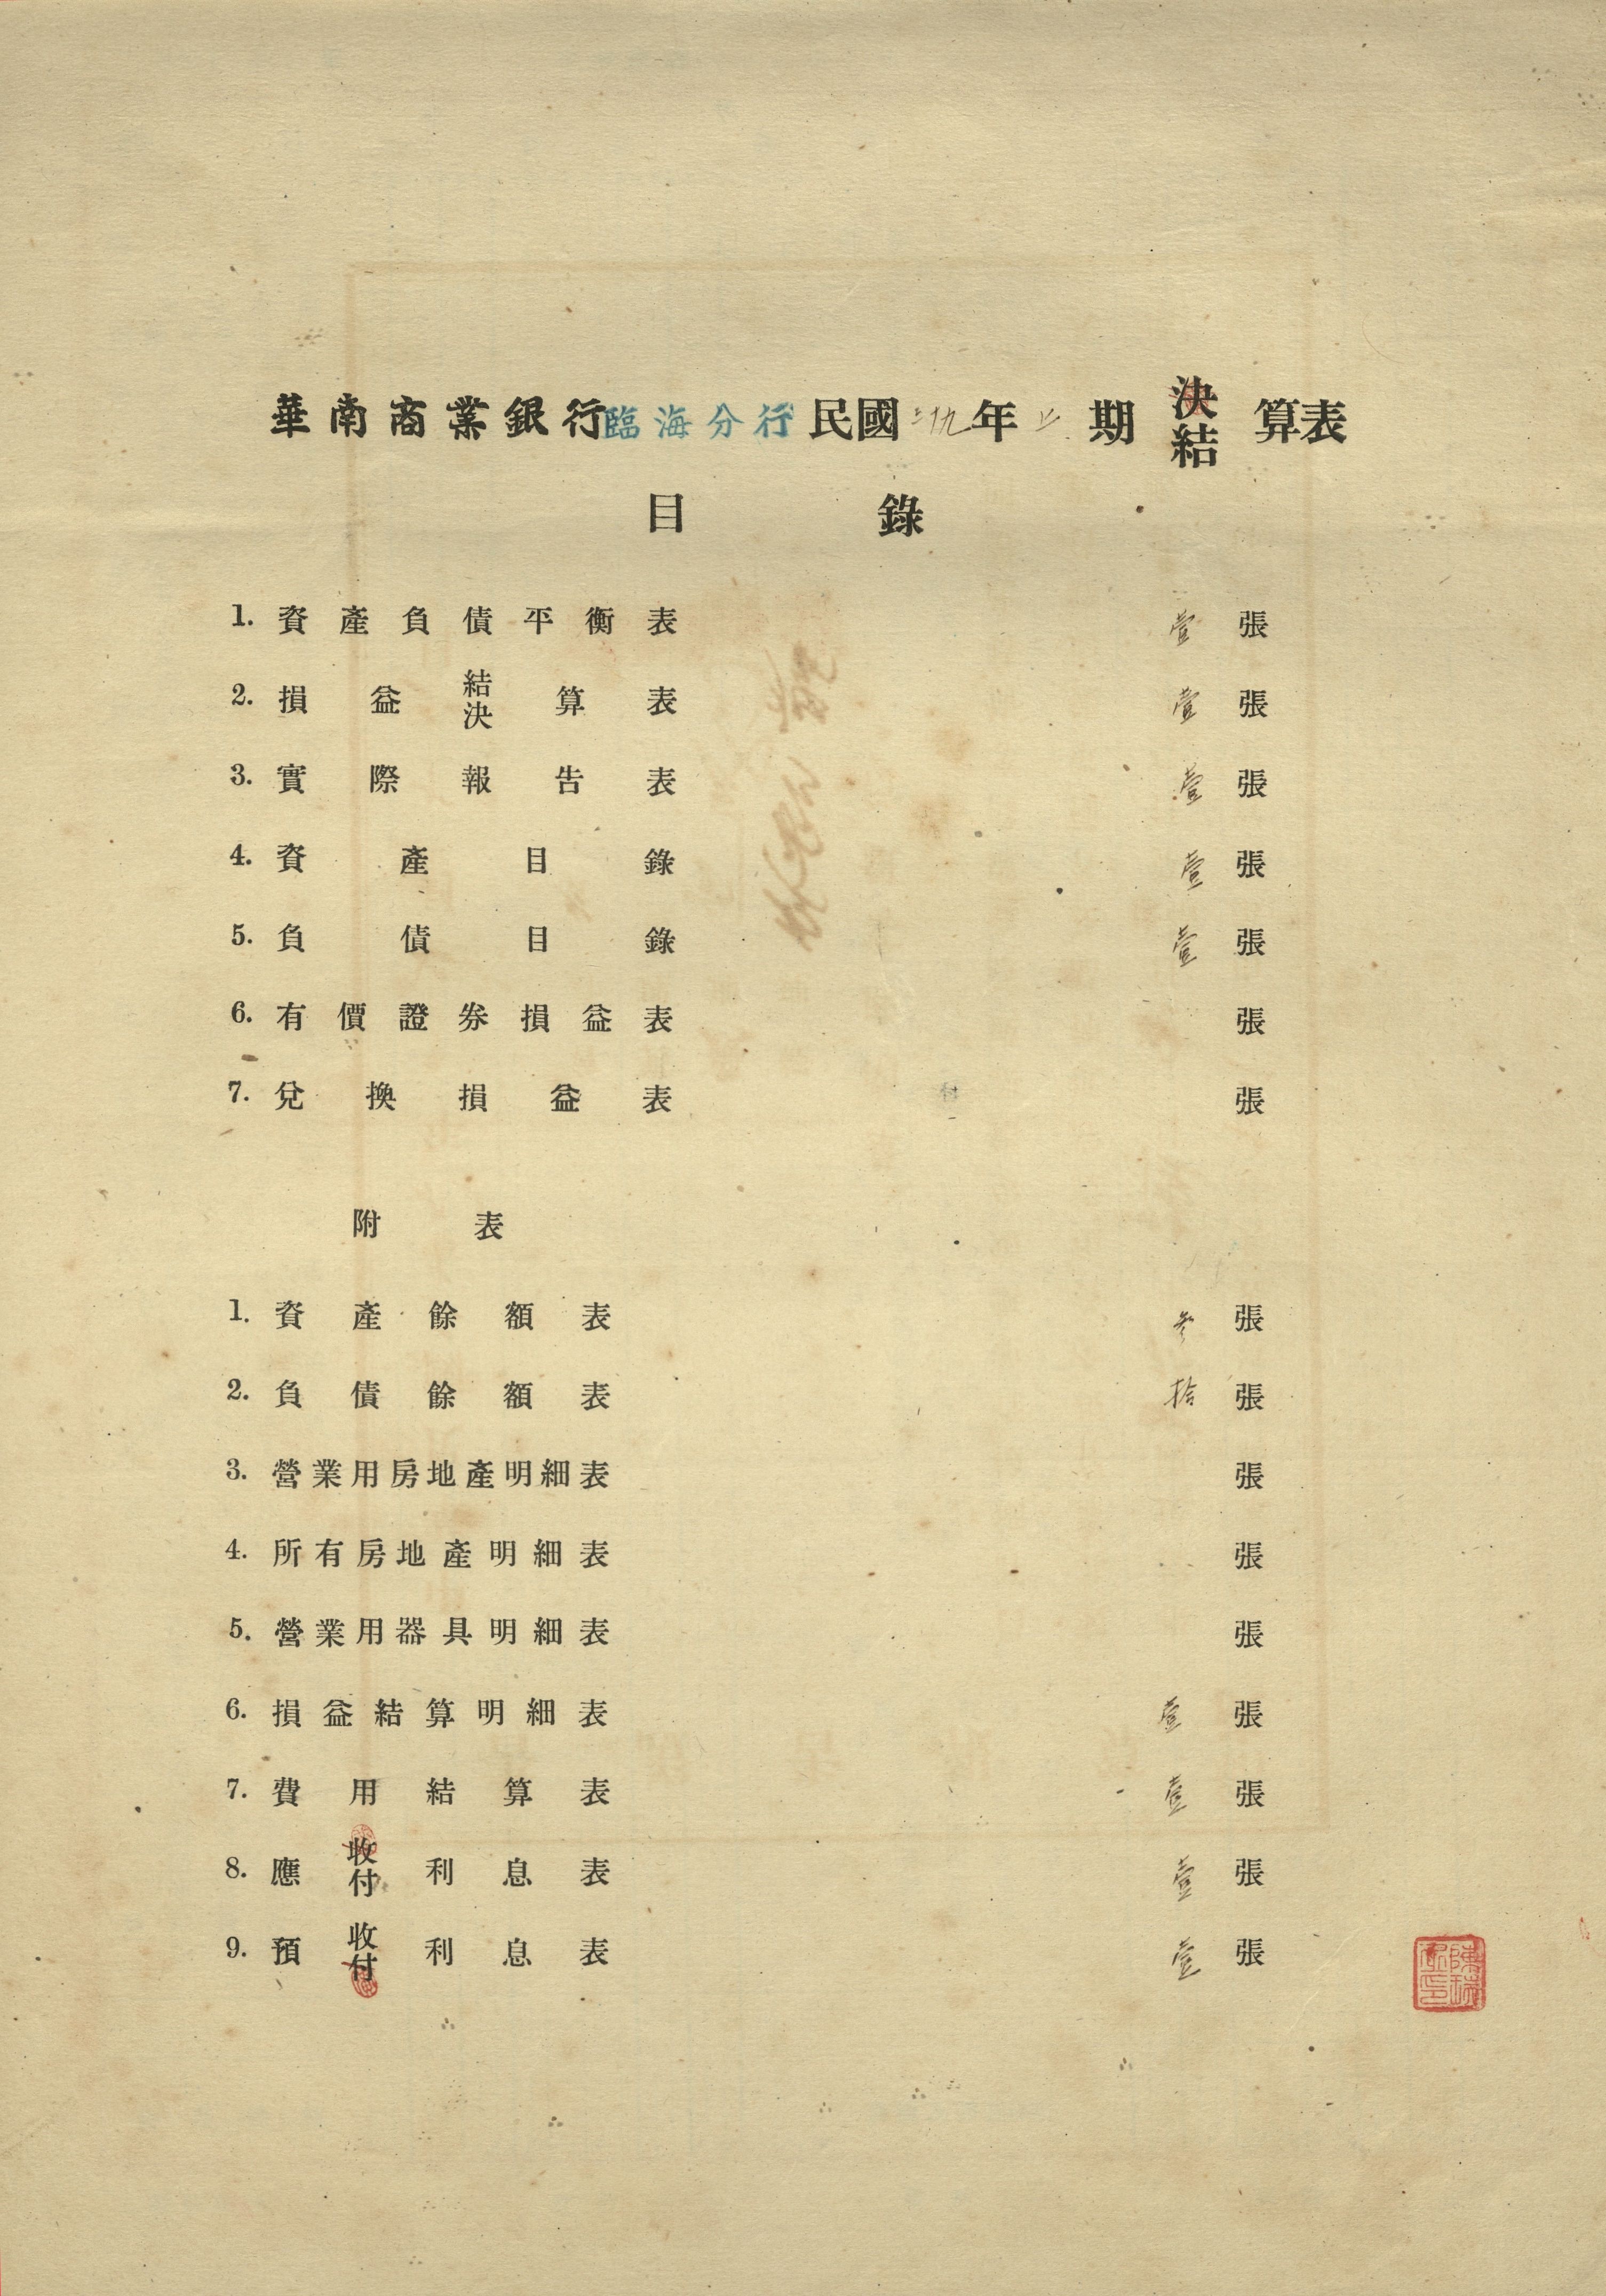 華南商業銀行臨海分行民國三十九年上期決結算表
目錄
1. 資產負債平衡表 壹張
2. 損益結決算表 壹張
3. 實際報告表 壹張
4. 資產目錄 壹張
5. 負債目錄 壹張
6. 有價證券損益表 張
7. 兌換損益表 張
附表
1. 資產餘額表 參張
2. 負債餘額表 拾張
3. 營業用房地產明細表 張
4. 所有房地產明細表 張
5. 營業用器具明細表 張
6. 損益結算明細表 壹張
7. 費用結算表 壹張
8. 應收付利息表 壹張
9. 預收付利息表 壹張